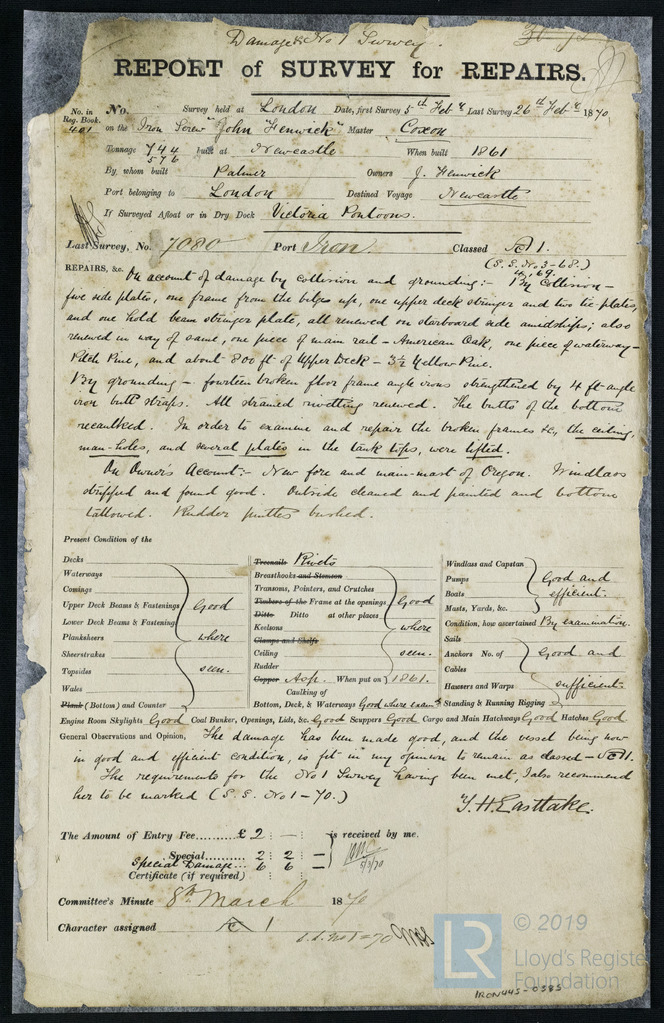 Damage & No 1 Survey.
REPORT of SURVEY for REPAIRS.
No. in Reg. Book. 401
No. Survey held at London Date, first Survey 5th Feby Last Survey 26th Feby 1870
on the Iron Screw "John Fenwick" Master Coxon
Tonnage 744 576 built at Newcastle When built 1861
By whom built Palmer Owners J. Fenwick
Port belonging to London Destined Voyage Newcastle
If Surveyed Afloat or in Dry Dock Victoria Pontoons.
Last Survey, No. 7080 Port Iron Classed A 1.
(S.S. No 3-68.)
4, 69.
REPAIRS, &c. On account of damage by collision and grounding:- By Collision -
five side plates, one frame from the bilges up, one upper deck stringer and two tie-plates,
and one hold beam stringer plate, all renewed on starboard side amidships; also
renewed in way of same, one piece of main rail - American Oak, one piece of waterway -
Pitch Pine, and about 800 ft of Upper Deck - 3½ Yellow Pine.
By grounding - fourteen broken floor frame angle irons strengthened by 4 ft angle
iron butt straps. All strained rivetting renewed. The butts of the bottom
recaulked. In order to examine and repair the broken frames &c, the ceiling,
man-holes, and several plates in the tank tops, were lifted.
On Owner's Account:- New fore and main-mast of Oregon. Windlass
stripped and found good. Outside cleaned and painted and bottom
tallowed. Rudder pintles bushed.
Present Condition of the
Decks
Waterways
Comings
Upper Deck Beams & Fastenings
Lower Deck Beams & Fastenings
Planksheers
Sheerstrakes
Topsides
Wales
Plank (Bottom) and Counter
Good
where
seen.
Treenails Rivets
Breasthooks and Stemson
Transoms, Pointers, and Crutches
Timbers of the Frame at the openings
Ditto Ditto at other places
Keelsons
Clamps and Shelfs
Ceiling
Rudder
Good
where
seen.
Copper Asp. When put on 1861.
Caulking of
Bottom, Deck, & Waterways Good where examd
Windlass and Capstan
Pumps
Boats
Masts, Yards, &c.
Good and
efficient.
Condition, how ascertained By examination.
Sails
Anchors No. of
Cables
Hawsers and Warps
Standing & Running Rigging
Good and
sufficient
Engine Room Skylights Good Coal Bunker, Openings, Lids, &c. Good Scuppers Good Cargo and Main Hatchways Good Hatches Good
General Observations and Opinion, The damage has been made good, and the vessel being now
in good and efficient condition, is fit in my opinion to remain as classed - A 1.
The requirements for the No 1 Survey having been met, I also recommend
her to be marked (S.S. No 1-70.)
T.H. Eastlake.
The Amount of Entry Fee......... £ 2 : - : is received by me.
Special......... 2 : 2 : -
Special Damage... 6 : 6 : -
Certificate (if required)
5/3/70
Committee's Minute 8th March 1870
Character assigned A 1
S.S. No 1-70
LR
© 2019
Lloyd's Registe
Foundation
IRON445-0385